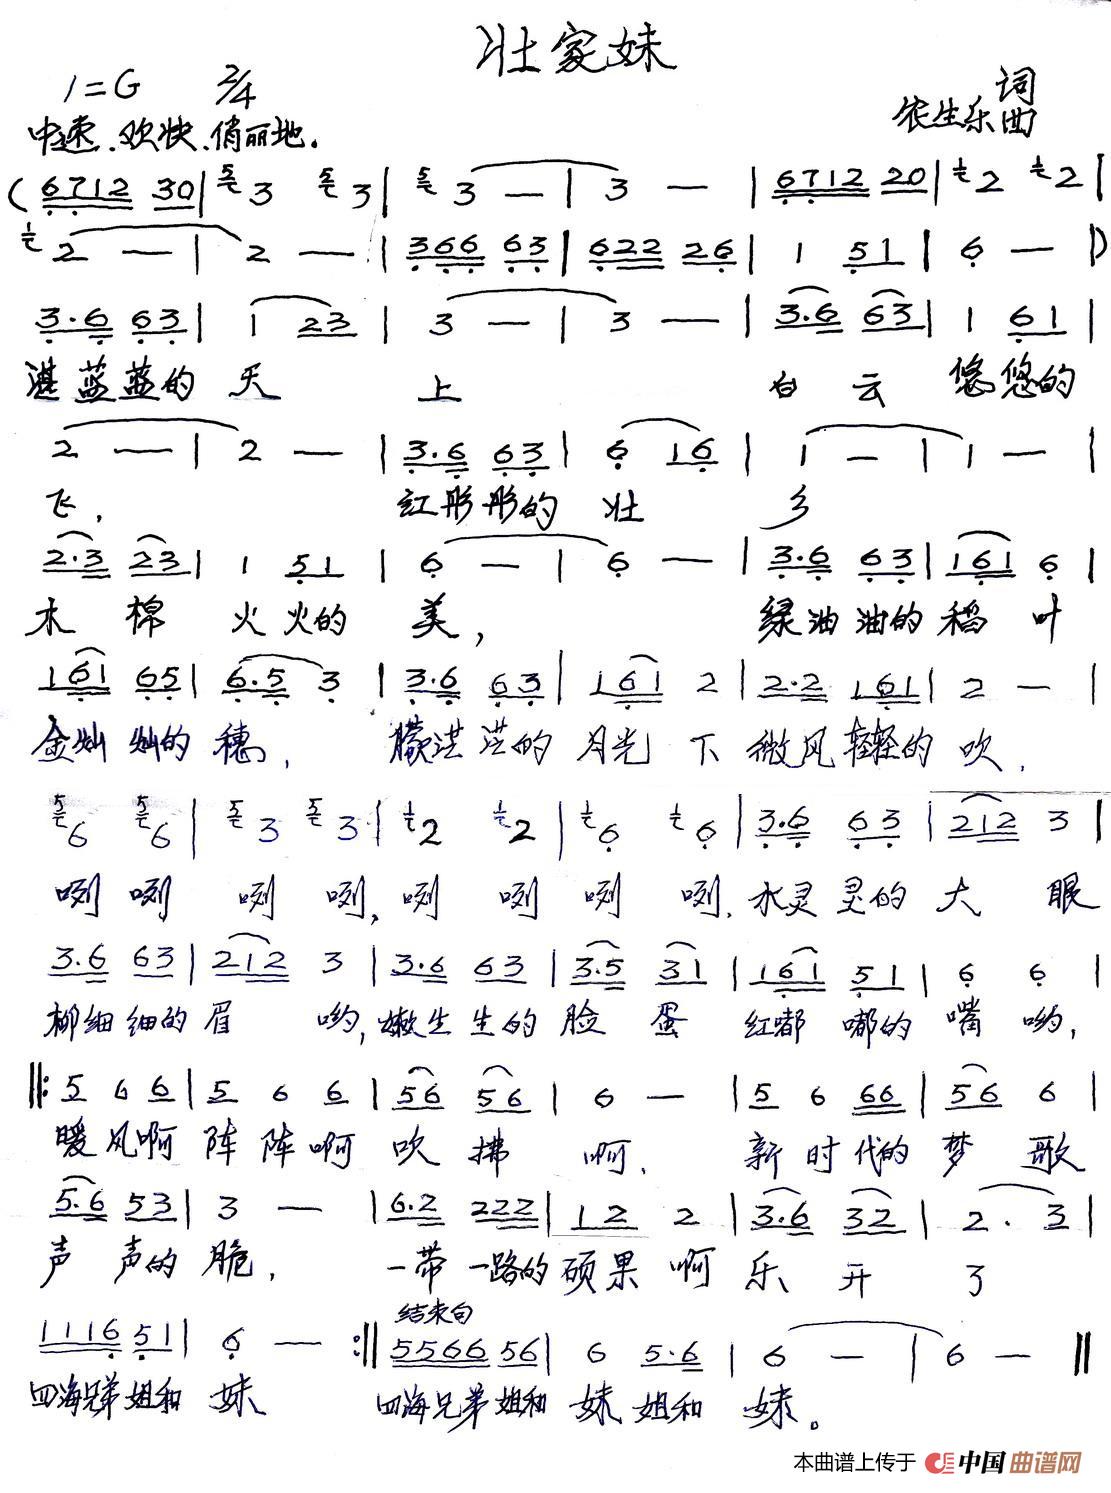 壮家妹
1=G 2/4
词
农生乐曲
中速.欢快.俏丽地。
(6712 30|3 3|3 —|3 —|6712 20|2 2|
2 —|2 —|366 63|622 26|1 51|6 —|)
3.6 63|1 23|3 —|3 —|3.6 63|1 61|
湛蓝蓝的天 上 白云 悠悠的
2 —|2 —|3.6 63|6 16|1 —|1 —|
飞, 红彤彤的 壮 乡
2.3 23|1 51|6 —|6 —|3.6 63|161 6|
木棉 火火的 美, 绿油油的稻叶
161 65|6.5 3|3.6 63|161 2|2.2 161|2 —|
金灿灿的穗, 朦洪洪的月光下 微风轻轻的吹.
6 6|3 3|2 2|6 6|3.6 63|212 3|
咧咧 咧咧,咧咧咧咧.水灵灵的大眼
3.6 63|212 3|3.6 63|3.5 31|161 51|6 6|
柳细细的眉 哟,嫩生生的脸蛋 红嘟嘟的嘴哟,
‖:5 6 6|5 6 6|56 56|6 —|5 6 66|56 6|
暖风啊 阵阵啊 吹拂 啊. 新时代的梦歌
5.6 53|3 —|6.2 222|12 2|3.6 32|2. 3|
声声的脆, 一带一路的硕果啊 乐开了
结束句
1116 51|6 — :‖5566 56|6 5.6|6 —|6 —‖
四海兄弟姐和 妹 四海兄弟姐和 妹姐和 妹。
本曲谱上传于 中国曲谱网